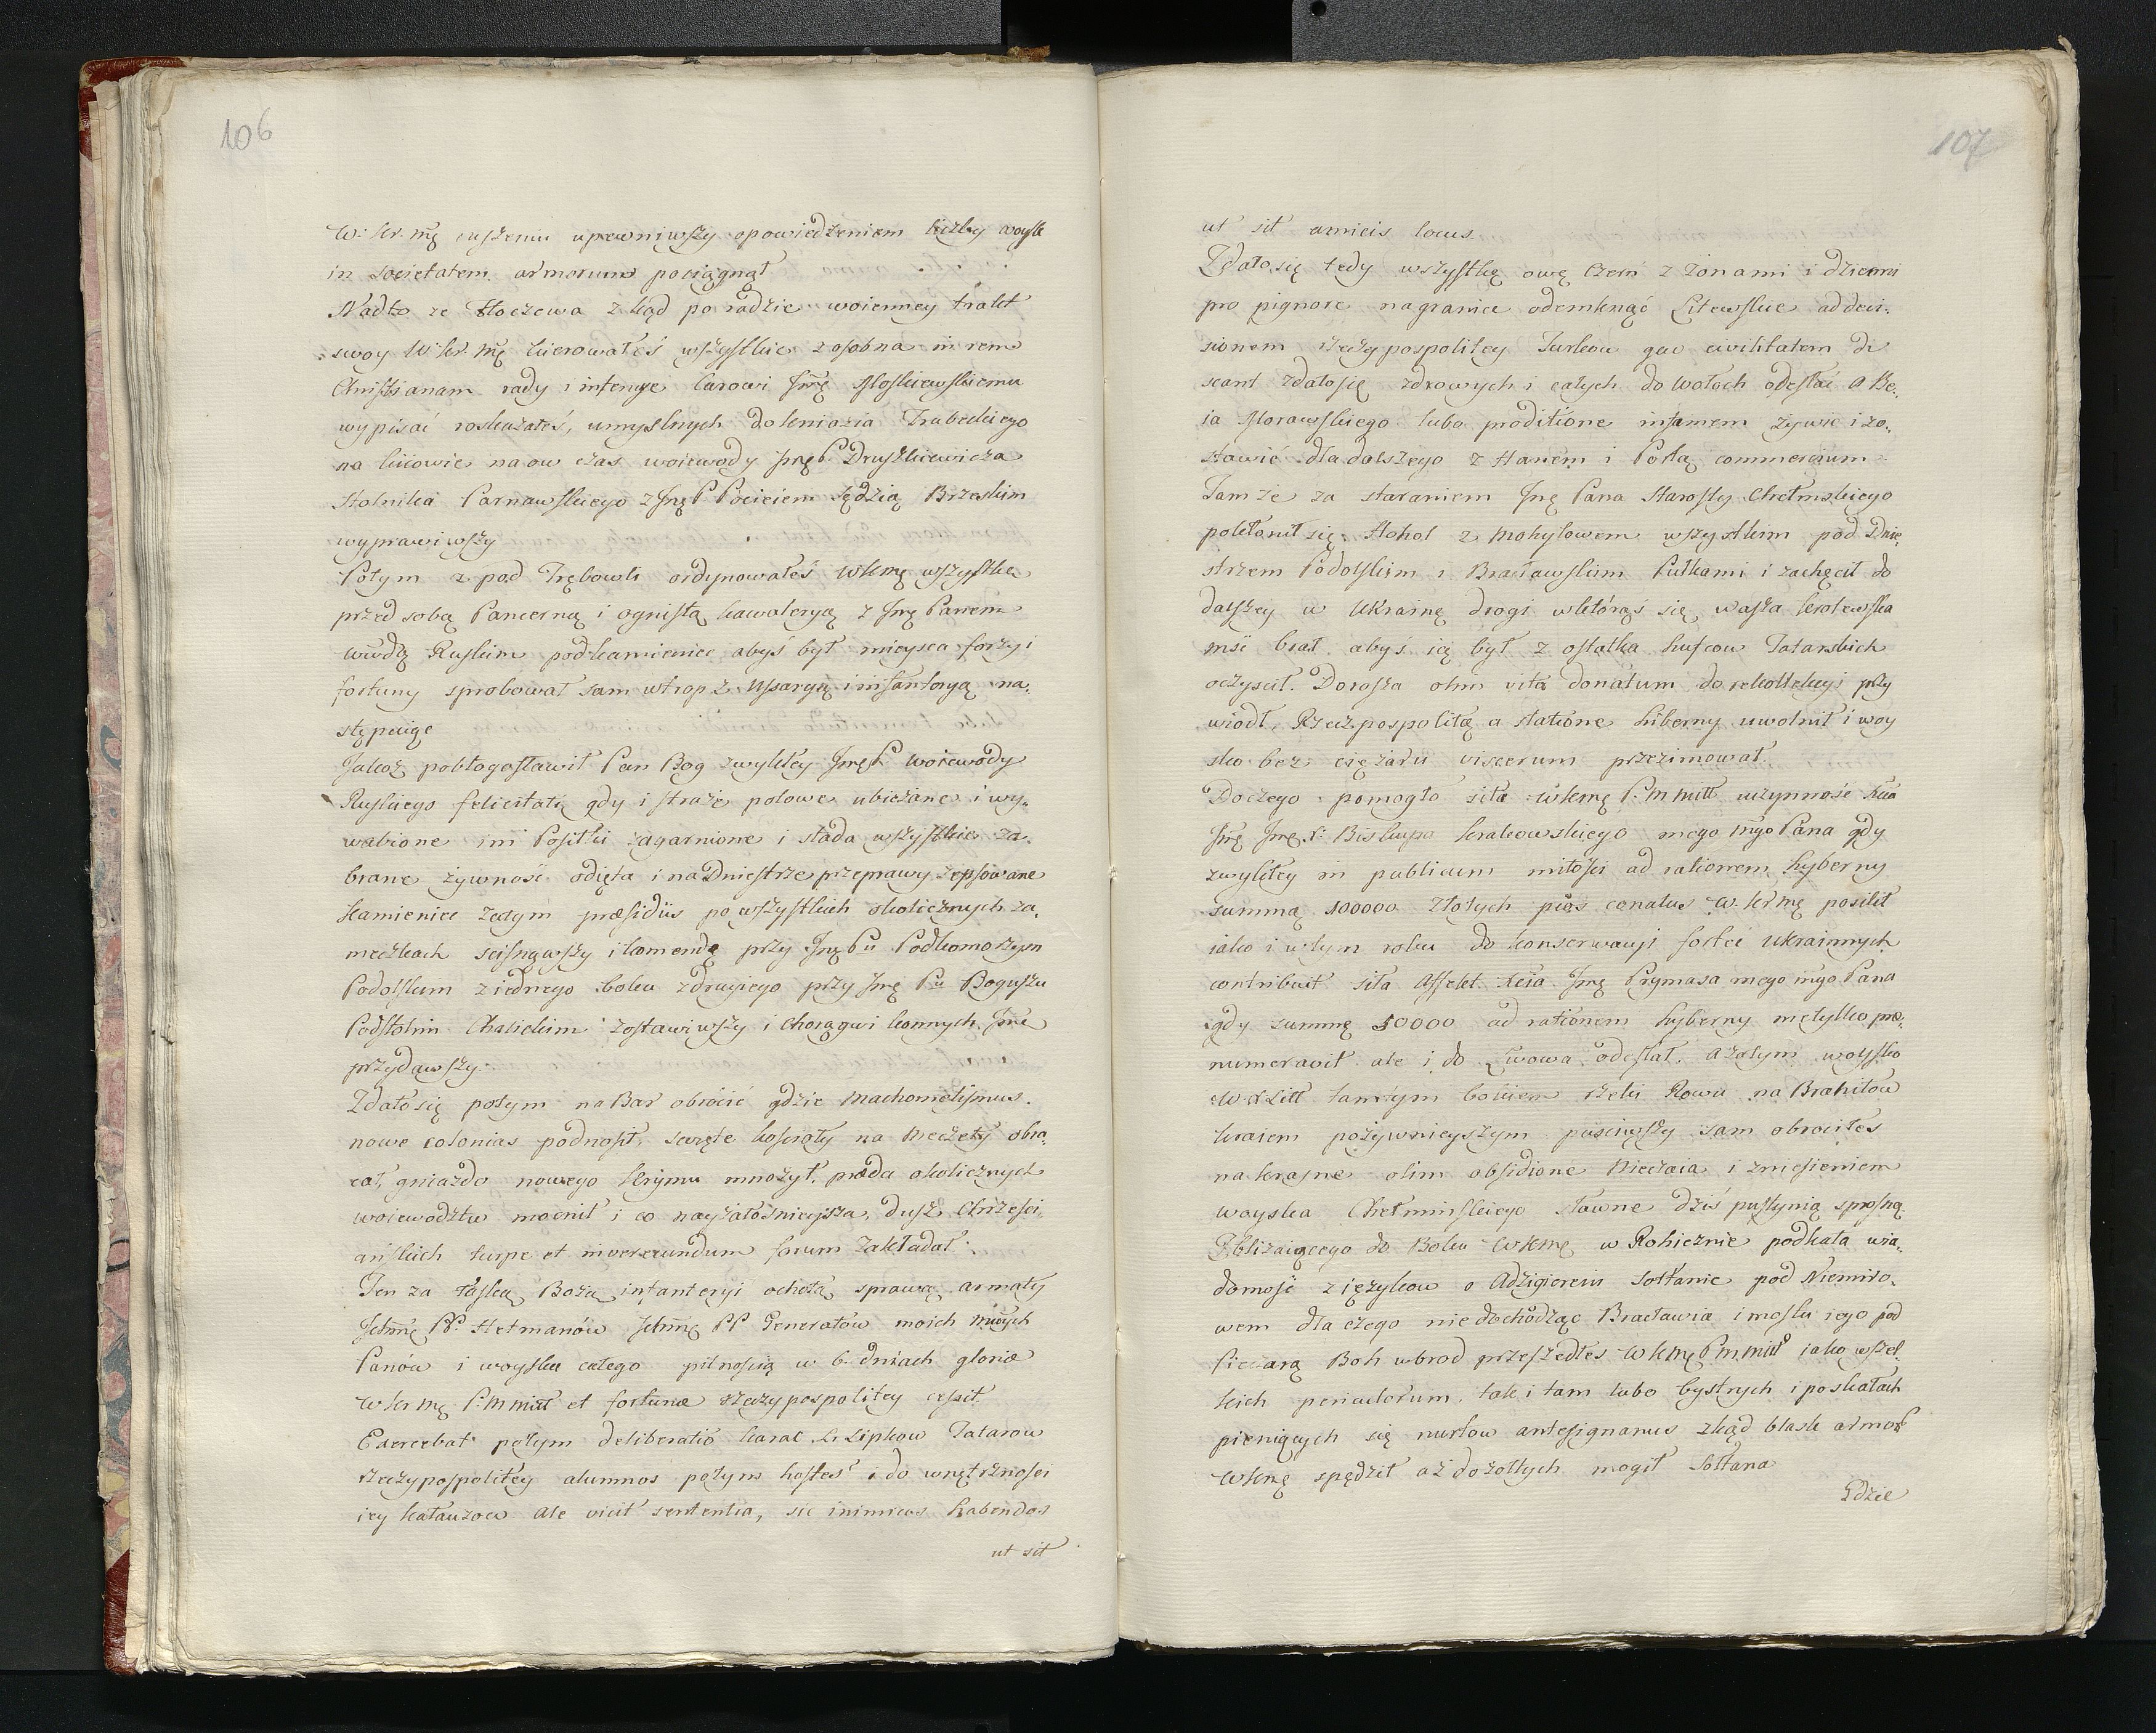 106
W: Kr. mę ruszeniu upewniwszy opowiedzeniem liczby woysk
in societatem armorum pociągnął
Nadto ze Złoczewa zkąd po radzie woienney trakt
swoy W Kr. Mę kierowałeś wszystkie z osobna in rem
Christianam rady i intencye Carowi Jmę Moskiewskiemu
wypisać roskazałeś, umyslnych do kniazia Trubeckiego
na kiiowie na ow czas woiewody Jmę P. Druszkiewicza
Stolnika Parnawskiego z Jmę P. Pocieiem Sędzią Brzeskim
wyprawiwszy
Potym z pod Trębowli ordynowałeś WKmę wszystkę
przed sobą Pancerną i ognistą kawaleryą z Jmę Panem
Wwdą Ruskim pod kamieniec abyś był mieysca forzy i
fortuny sprobował sam w trop z Ussaryą i infanteryą na-
stępuiąc
Jakoż pobłogosławił Pan Bog zwykłey Jmę P. Woiewody
Ruskiego felicitati gdy i straże polowe ubieżane i wy-
wabione in Positki zagarnione i stada wszystkie za-
brane żywność odięta i na Dniestrze przeprawy zepsowane
Kamieniec zatym præsidiis po wszystkich okolicznych za-
meczkach scisnąwszy i komendę przy Jmę Pu Podkomorzym
Podolskim z iednego boku z drugiego przy Jmę Pu Boguszu
Podstolim Chalickim zostawiwszy i Chorągwi konnych Jme
przydawszy
Zdało się potym na Bar obrócić gdzie Machometismus
nowe colonias podnosił, swięte kościoły na Meczety obra-
cał, gniazdo nowego Krymu mnożył, præda okolicznych
woiewodztw mocnił i co nayżałośnieysza, dusz Chrześci-
ańskich turpe et inverecundum forum zakładał.
Ten za łaską Bożą infanteryi ochotą sprawą armaty
Jchmę PP. Hetmanów Jchmę PP Generałów moich Mwych
Panów i woyska całego pilnością w 6. dniach gloriæ
W Kr Mę P. M miłł et fortunæ rzeczypospolitey cessit
Exercebat potym deliberatio karac li Lipkow Tatarow
rzeczypospolitey alumnos potym hostes i do wnętrznosci
iey kałauzow ale vicit sententia, sic inimicos habendos
ut sit
107
ut sit amicis locus
Zdało się tedy wszystkę owę Czerń z żonami i dziecmi
pro pignore na granice odemknąć Litewskie ad deci-
sionem rzeczypospolitey Turkow quo civilitatem di
scant zdało się zdrowych i całych do Wołoch odesłać a Be-
ia Morawskiego lubo proditione infamem żywic i zo-
stawić dla dalszego z Hanem i Portą commercium
Tamże za staraniem Jmę Pana Starosty Chełmskiego
pokłonił się Hohol z Mohyłowem wszystkim pod Dnie-
strzem Podolskim i Bracławskim Pułkami i zachęcił do
dalszey w Ukrainę drogi w którąś się wasza krolewska
mść brał abyś ią był z ostatka hufcow Tatarskich
oczyscił. Dorosza olim vita donatum do rekollekcyi przy
wiodł, Rzeczpospolitą a statione hiberny uwolnił i woy
sko bez ciężaru viscerum przezimował.
Do czego pomogło siła WKmę P. M miłł uczynność Xcia
Jmę Jmę X Biskupa krakowskiego mego Mgo Pana gdy
zwykłey in publicum miłości ad rationem hyberny
summą 100000 złotych pios conatus W. Kr mę posiłł
iako i w tym roku do konserwacyi fortec Ukrainnych
contribuit siła Affekt Xcia Jmę Prymasa mego mgo Pana
gdy summę 50000 ad rationem hyberny nietylko præ-
numeravit ale i do Lwowa odesłał. A zatym woysko
W X Litt tamtym bokiem rzeki Rowu na Brahiłow
kraiem pożywnieyszym pusciwszy sam obrociłeś
na krasne olim obsidione Nieczaia i zniesieniem
woyska Chełminskiego sławne dziś pustynią sprosną.
Zbliżaiącego do Bohu WKmę w Rohiznie podkała wia-
domość z ięzykow o Adzigiereiu Sołtanie pod Niemiro-
wem dla czego nie dochodząc Bracławia i mostu iego pod
Pieczarą Boh w brod przeszedłeś W Kmę P. M miłł iako wszel-
kich periculorum, tak i tam lubo bystrych i po skałach
pieniących się nurtow antesignanus zkąd blask armor
WKmę spędził aż do żołtych mogił Sołtana
Gdzie